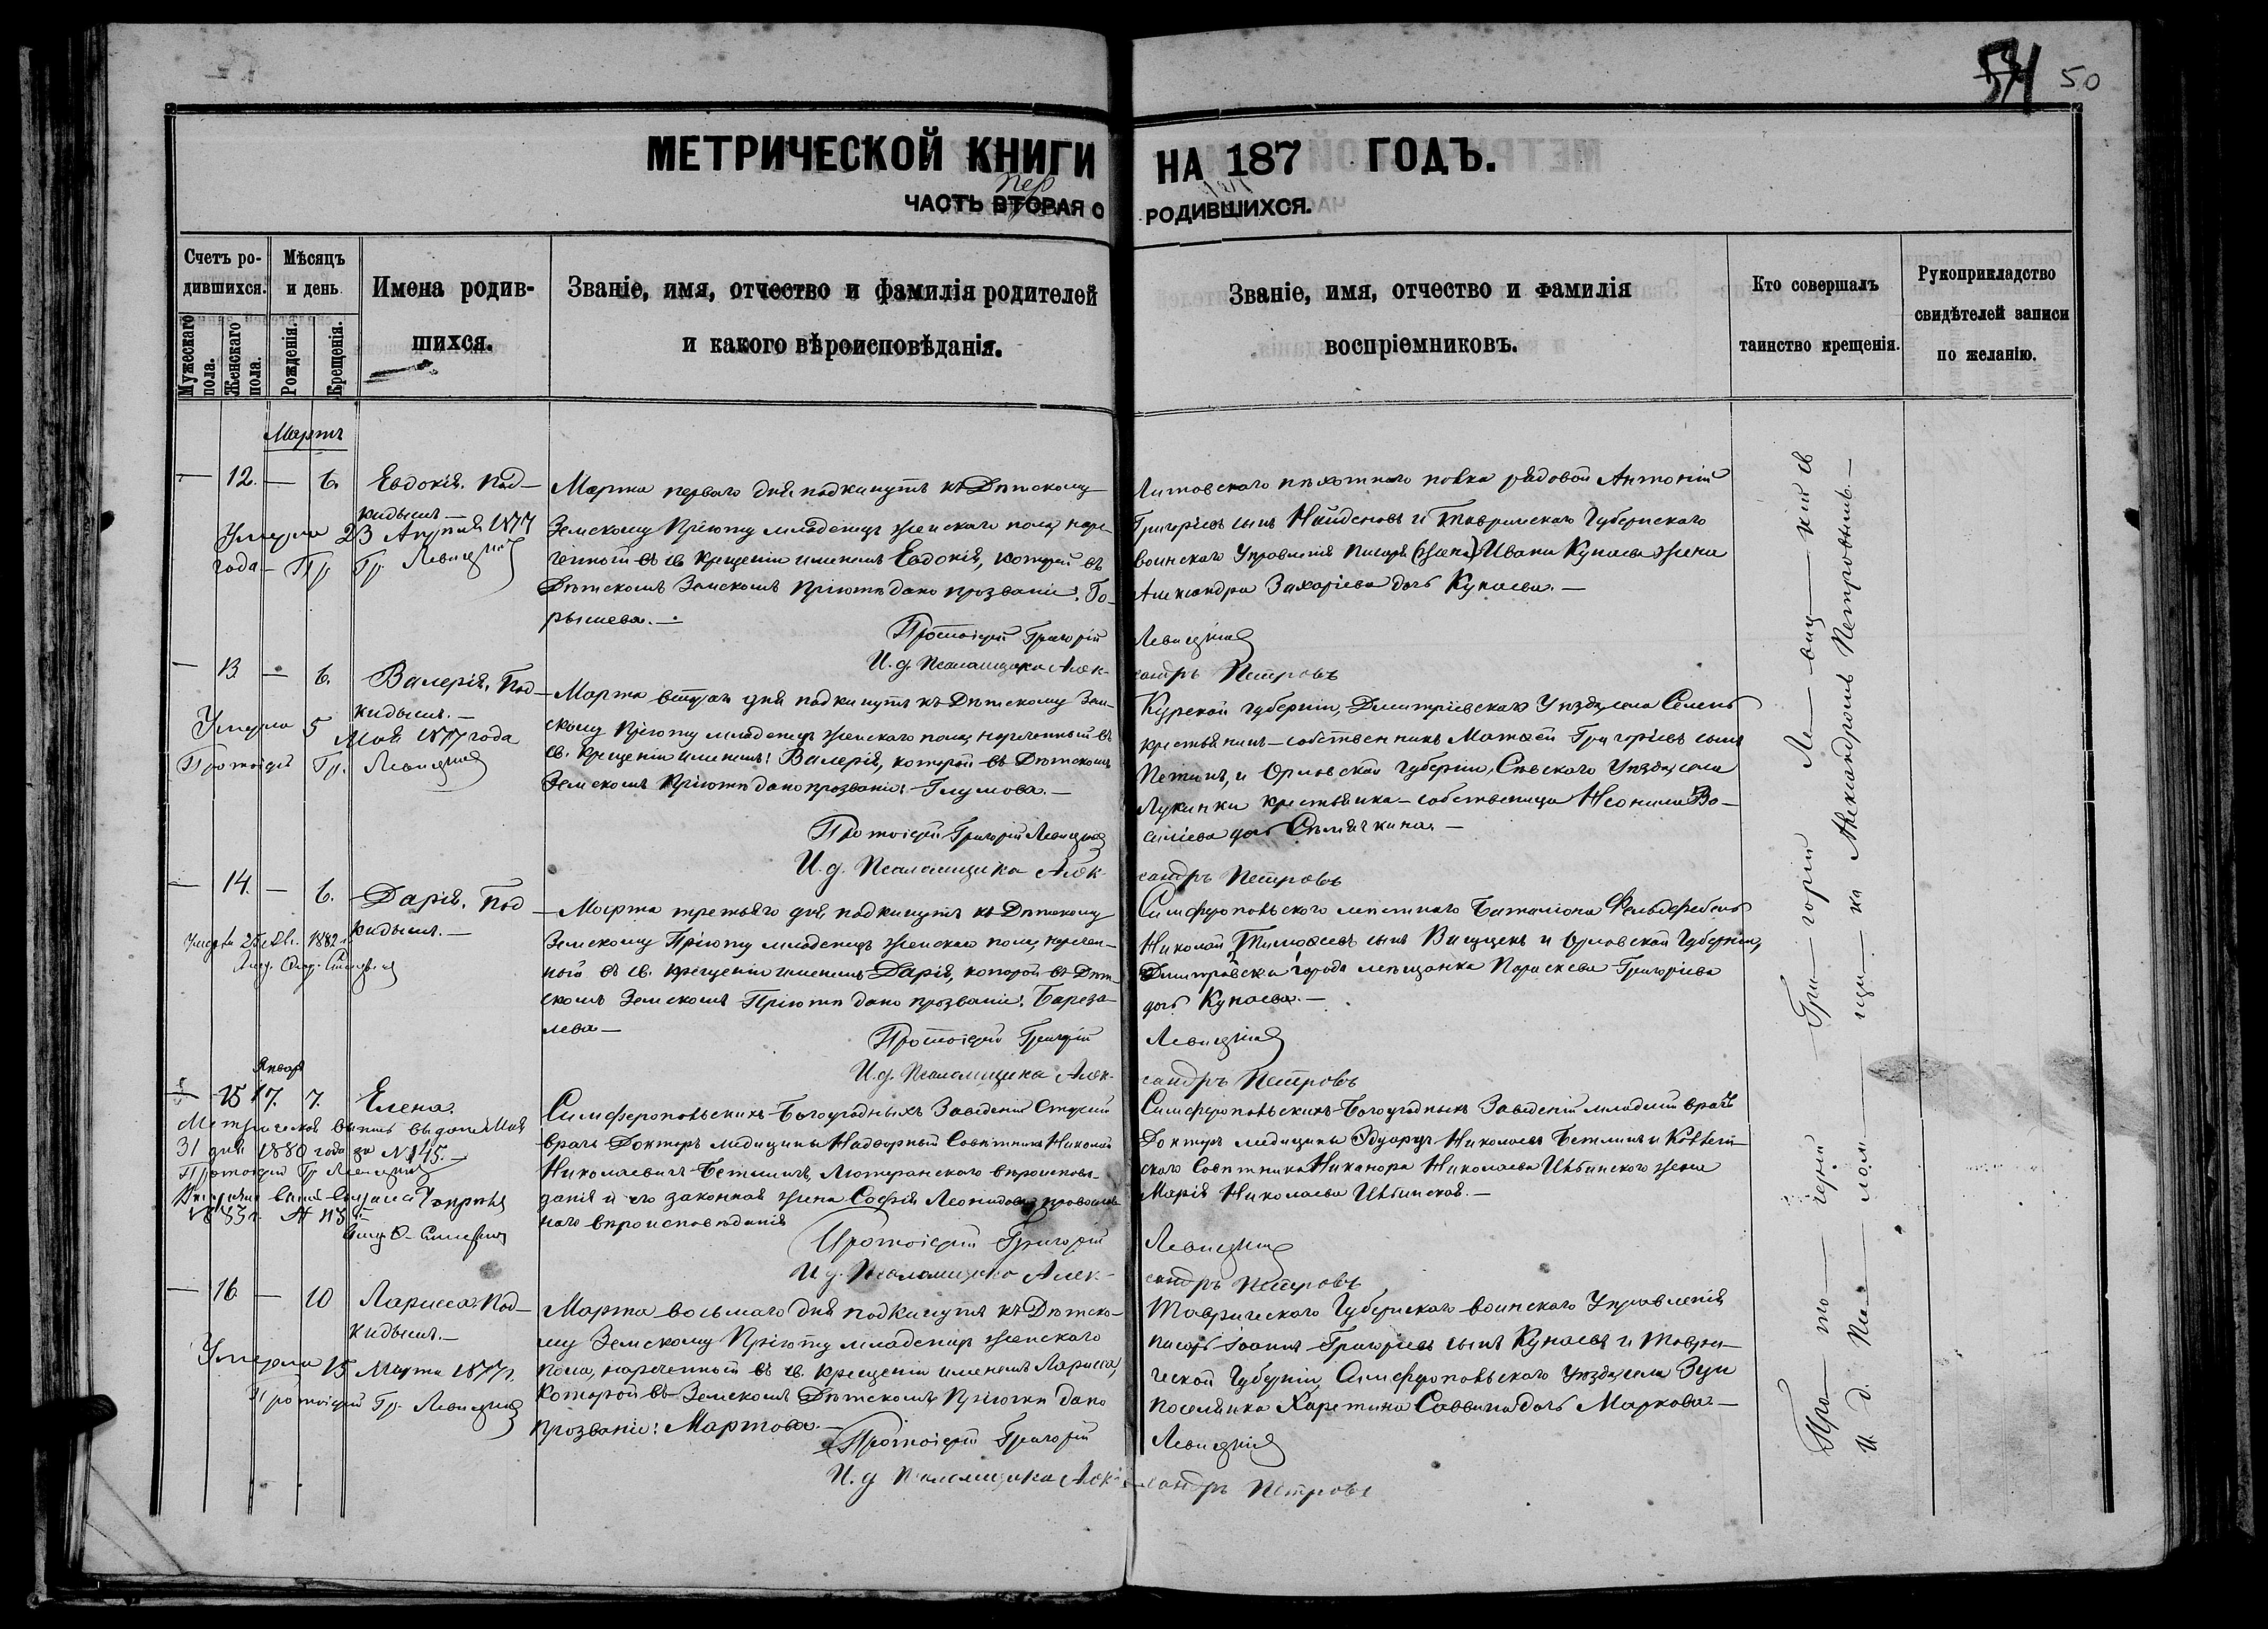 54 50
МЕТРИЧЕСКОЙ КНИГИ НА 187 ГОДЪ.
пер
ЧАСТЬ ВТОРАЯ О РОДИВШИХСЯ.
Счетъ ро-
дившихся.
Мужескаго пола.
Женскаго пола.
Мѣсяцъ
и день
Рожденія.
Крещенія.
Имена родив-
шихся.
Званіе, имя, отчество и фамилія родителей
и какого вѣроисповѣданія.
Званіе, имя, отчество и фамилія
воспріемниковъ.
Кто совершалъ
таинство крещенія.
Рукоприкладство
свидѣтелей записи
по желанію.
Мартъ
— 12. — 6. Евдокія. Под-
кидышъ.—
Умерла 23 Апрѣля 1877
года — Пр. Гр. Левицкій
Марта перваго дня подкинутъ къ Дѣтскому
Земскому Пріюту младенецъ женскаго пола, наре-
ченной въ св. крещеніи именемъ Евдокія, которой въ
Дѣтскомъ Земскомъ Пріютѣ дано прозваніе: Го-
рышева.—
Протоіерей Григорій
И. д. Псаломщика Алек-
Литовскаго пѣхотнаго полка рядовой Антоній
Григорьевъ сынъ Найденовъ и Таврическаго Губернскаго
воинскаго Управленія писаря (жена) Ивана Купаева жена
Александра Захаріева дочь Купаева.—
Левицкій
сандръ Петровъ
— 13. — 6. Валерія. Под-
кидышъ.—
Умерла 5
Мая 1877 года
Протоіерей Гр. Левицкій
Марта втораго дня подкинутъ къ Дѣтскому Зем-
скому Пріюту младенецъ женскаго пола, нареченный въ
св. крещеніи именемъ: Валерія, которой въ Дѣтскомъ
Земскомъ Пріютѣ дано прозваніе: Глумова.—
Протоіерей Григорій Левицкій
И. д. Псаломщика Алек-
Курской губерніи, Дмитріевскаго Уѣзда, села
крестьянинъ-собственникъ Матѳей Григорьевъ сынъ
и Орловской Губерніи, Сѣвскаго Уѣзда, села
Лукинки крестьянка-собственница Неонила Ва-
силіева дочь
сандръ Петровъ
— 14. — 6. Дарія. Под
кидышъ.—
1882
Марта третьяго дня подкинутъ къ Дѣтскому
Земскому Пріюту младенецъ женскаго пола, наречен-
ной въ св. крещеніи именемъ Дарія, которой въ Дѣт-
скомъ Земскомъ Пріютѣ дано прозваніе: Бареза-
лева—
Протоіерей Григорій
И. д. Псаломщика Алек-
Симферопольскаго мѣстнаго Баталіона Фельдфебель
Николай Тимоѳеевъ сынъ и Орловской Губерніи,
Дмитровска города мѣщанка Параскева Григоріева
дочь Купаева.—
Левицкій
сандръ Петровъ
Январ
— 15 17. 7. Елена.
Метрическая выпись выдана Мая
31 дня 1880 года за № 145.—
Протоіерей Гр. Левицкій
№ 113
Симферопольскихъ Богоугодныхъ Заведеній Старшій
врачъ Докторъ медицины Надворный Совѣтникъ Николай
Николаевичъ Бетлингъ, Лютеранскаго вѣроисповѣ-
данія и его законная жена Софія Леонидова, православ-
наго вѣроисповѣданія
Протоіерей Григорій
И. д. Псаломщика Алек-
Симферопольскихъ Богоугодныхъ Заведеній младшій врачъ
Докторъ медицины Эдуардъ Николаевъ Бетлингъ и Коллеж-
скаго Совѣтника Никанора Николаева Ильинскаго жена
Марія Николаева Ильинская.—
Левицкій
сандръ Петровъ
— 16. — 10 Ларисса. Под-
кидышъ.—
Умерла 15 Марта 1877 г.
Протоіерей Гр. Левицкій
Марта восьмаго дня подкинутъ къ Дѣтско-
му Земскому Пріюту младенецъ женскаго
пола, нареченный въ св. крещеніи именемъ Ларисса,
которой въ Земскомъ Дѣтскомъ Пріютѣ дано
прозваніе: Мартова.—
Протоіерей Григорій
И. д. Псаломщика Алек-
Таврическаго Губернскаго воинскаго Управленія
писарь Іоаннъ Григорьевъ сынъ Купаевъ и Таври-
ческой Губерніи, Симферопольскаго Уѣзда, села Зуи
поселянка Харитина Саввина дочь Маркова.—
Левицкій
сандръ Петровъ
Про—то—іерей Гри—горій Ле—виц—кій съ
И. д. Пса—лом—щи—ка Александромъ Петровымъ.—